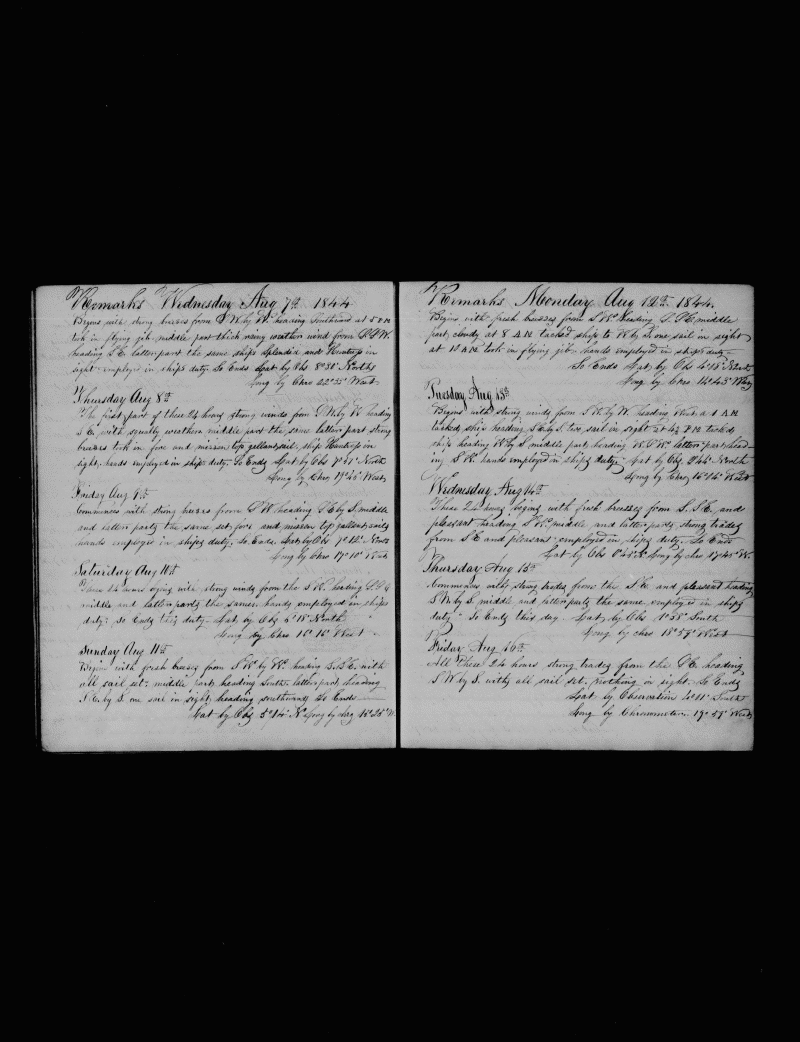 Remarks Wednesday Aug 7th 1844
Begins with strong breezes from S W by W. heading Southward at 5 P M
took in flying jib middle part thick rainy weather wind from S S W.
heading S E. latter part the same ships Splendid and Huntress in
sight employed in ships duty So Ends Lat by Obs North
Long by Chro West
Thursday Aug 8th
The first part of these 24 hours strong winds from S W by W heading
S E with squally weather middle part the same latter part strong
breezes took in fore and mizzen top gallant sail, ship Huntress in
sight. hands employed in ships duty. So Ends Lat by Obs North
Long by Chro, West,
Friday Aug 9th
Commences with strong breezes from S W heading S E by S, middle
and latter parts the same set fore and mizzen top gallant sails
hands employed in ships duty. So Ends. Lat by Obs North
Long by Chro West
Saturday Aug 10th
These 24 hours begins with strong winds from the S W. heading
middle and latter parts the same. hands employed in ships
duty. So Ends this duty Lat, by Obs North
Long by Chro West
Sunday Aug 11th
Begins with fresh breezes from S. W. by W. heading S.S.E. with
all sail set. middle part, heading South. latter part, heading
by S. one sail in sight heading southward So Ends
Lat by Obs 5°14' N. Long by Chro W.
Remarks Monday Aug 12th 1844.
Begins with fresh breezes from S W heading S. S E. middle
part, cloudy at 8 A M tacked ship to W by S. one sail in sight
at 10 A M took in flying jib. hands employed in ships duty
So Ends Lat by Obs North
Long by Chro West
Tuesday Aug 13th
Begins with strong winds from S W. by W. heading West at 1 A M
tacked ship heading S by E two, sail in sight at P M tacked
ship heading W by S middle part, heading latter part, head
ing S W. hands employed in ships duty. Lat by Obs. North
Long by Chro, West
Wednesday Aug 14th
These 24 hours begins with fresh breezes from S. S E, and
pleasant heading S W. middle and latter parts strong trades
from S E and pleasant employed in ships duty. So Ends
Lat by Obs N. Long by chro 17°45' W.
Thursday Aug 15th
Commences with strong trades from the S E and pleasant heading
S W by S. middle and latter parts the same employed in ships
duty So Ends this day. Lat by Obs South
Long by chro 18°57' West
Friday Aug 16th
All These 24 hours strong trades from the S E. heading
S W by S. with all sail set. nothing in sight. So Ends
Lat by Observation South
Long by Chronometer 19°57' West